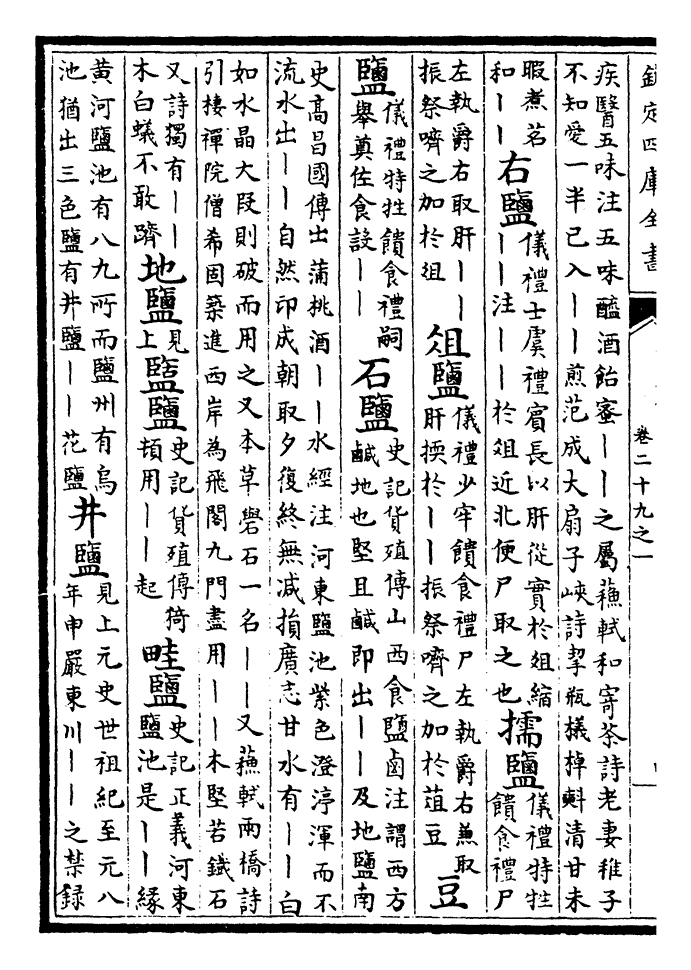 欽定四庫全書
卷二十九之一
疾醫五味注五味醯酒飴蜜——之屬蘇軾和寄茶詩老妻稚子
不知愛一半已入——煎范成大扇子峽詩挈瓶檥棹㪺清甘未
暇煮茗
和——
右鹽
儀禮士虞禮賓長以肝從實於俎縮
——注——於俎近北便尸取之也
擩鹽
儀禮特牲
饋食禮尸
左執爵右取肝——
振祭嚌之加於俎
俎鹽
儀禮少牢饋食禮尸左執爵右兼取
肝擩於——振祭嚌之加於葅豆
豆
鹽
儀禮特牲饋食禮嗣
舉奠佐食設——
石鹽
史記貨殖傳山西食鹽鹵注謂西方
鹹地也堅且鹹即出——及地鹽南
史高昌國傳出蒲桃酒——水經注河東鹽池紫色澄渟渾而不
流水出——自然印成朝取夕復終無減損廣志甘水有——白
如水晶大段則破而用之又本草礜石一名——又蘇軾兩橋詩
引棲禪院僧希固築進西岸為飛閣九門盡用——木堅若鐵石
又詩獨有——
木白蟻不敢躋
地鹽
見
上
盬鹽
史記貨殖傳猗
頓用——起
畦鹽
史記正義河東
鹽池是——緣
黃河鹽池有八九所而鹽州有烏
池猶出三色鹽有井鹽——花鹽
井鹽
見上元史世祖紀至元八
年申嚴東川——之禁録